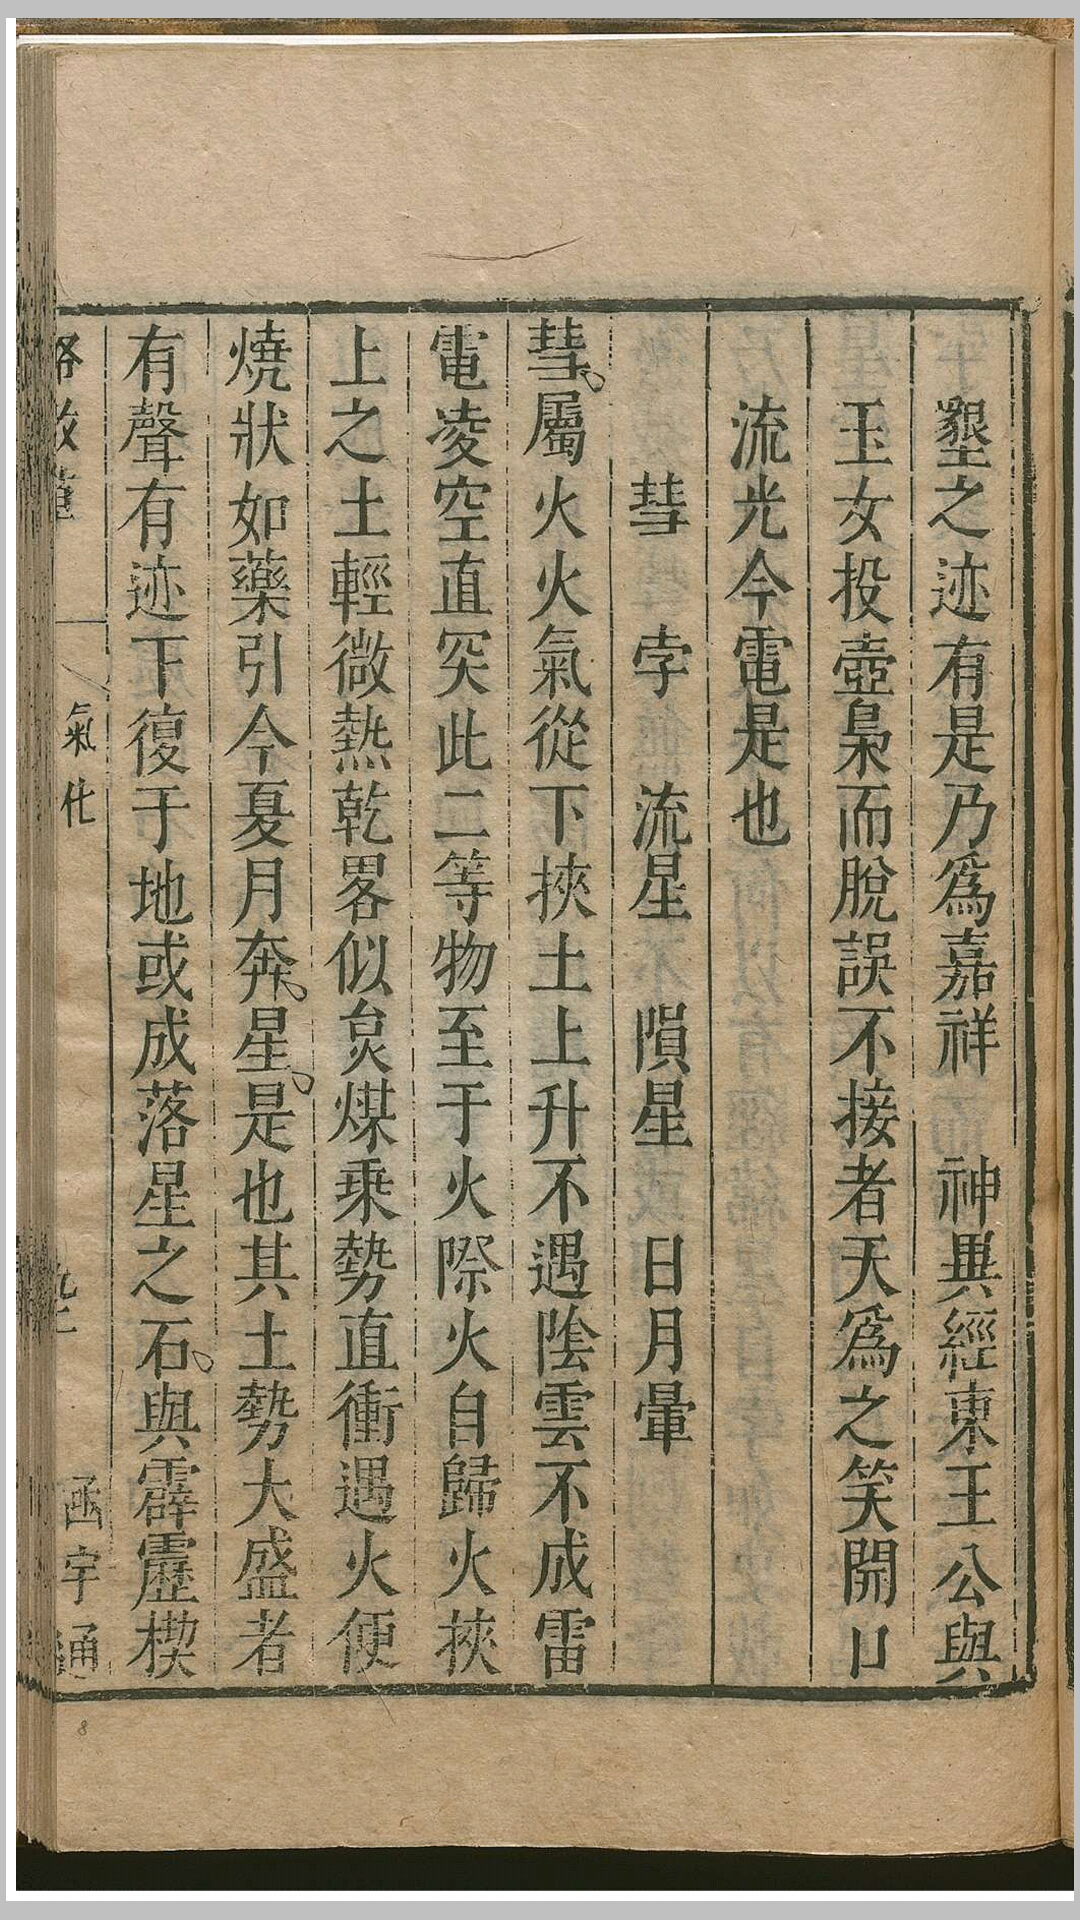 壑之迹有是乃爲嘉祥　神異經東王公與
玉女投壺梟而脫誤不接者天爲之笑開口
流光今電是也
彗　孛　流星　隕星　日月暈
彗屬火火氣從下挾土上升不遇陰雲不成雷
電凌空直突此二等物至于火際火自歸火挾
上之土輕微熱乾畧似炱煤乘勢直衝遇火便
燒狀如藥引今夏月奔星是也其土勢大盛者
有聲有迹下復于地或成落星之石與霹靂楔
格致草　氣化　函宇通
8